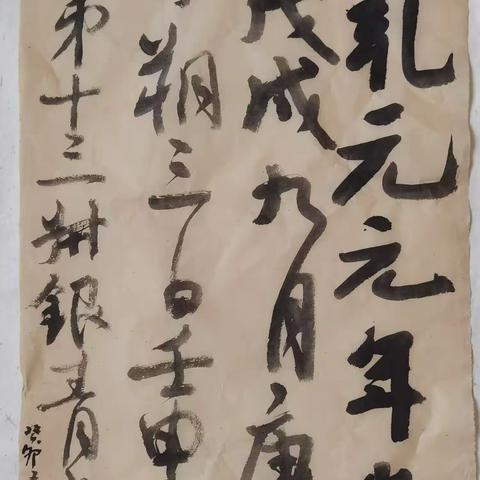 乾元元年
戊戌九月庚
朔三日壬申
第十三叔銀青
癸卯